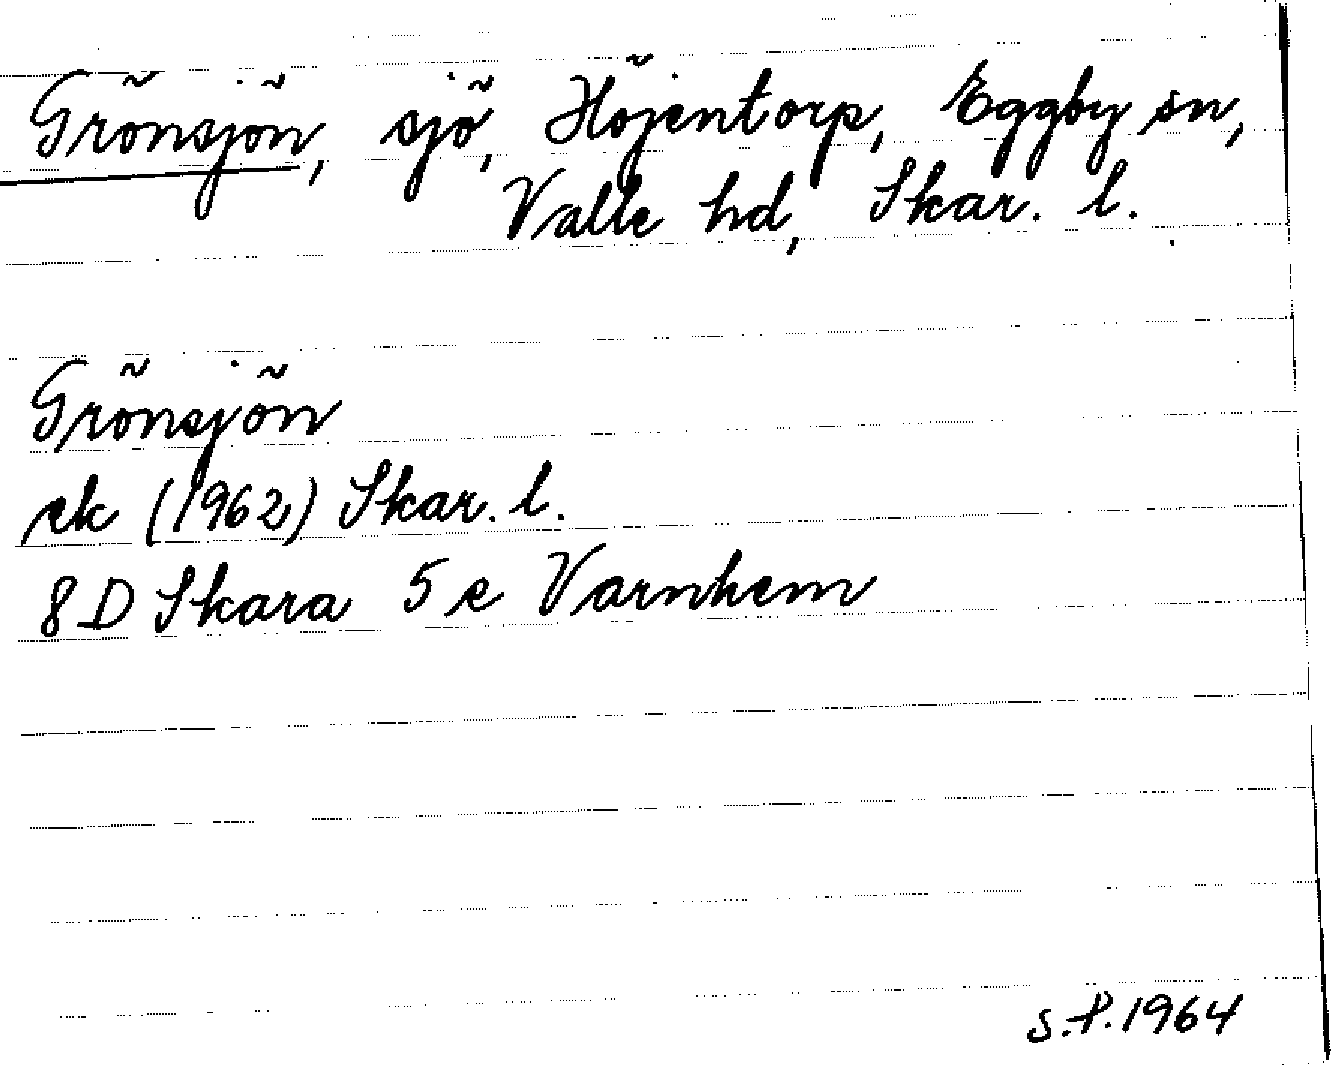 Grönsjön, sjö, Höjentorp, Eggby sn,
Valle hd, Skar. l.
Grönsjön
ek (1962) Skar. l.
8 D Skara 5 e Varnhem
S.P. 1964